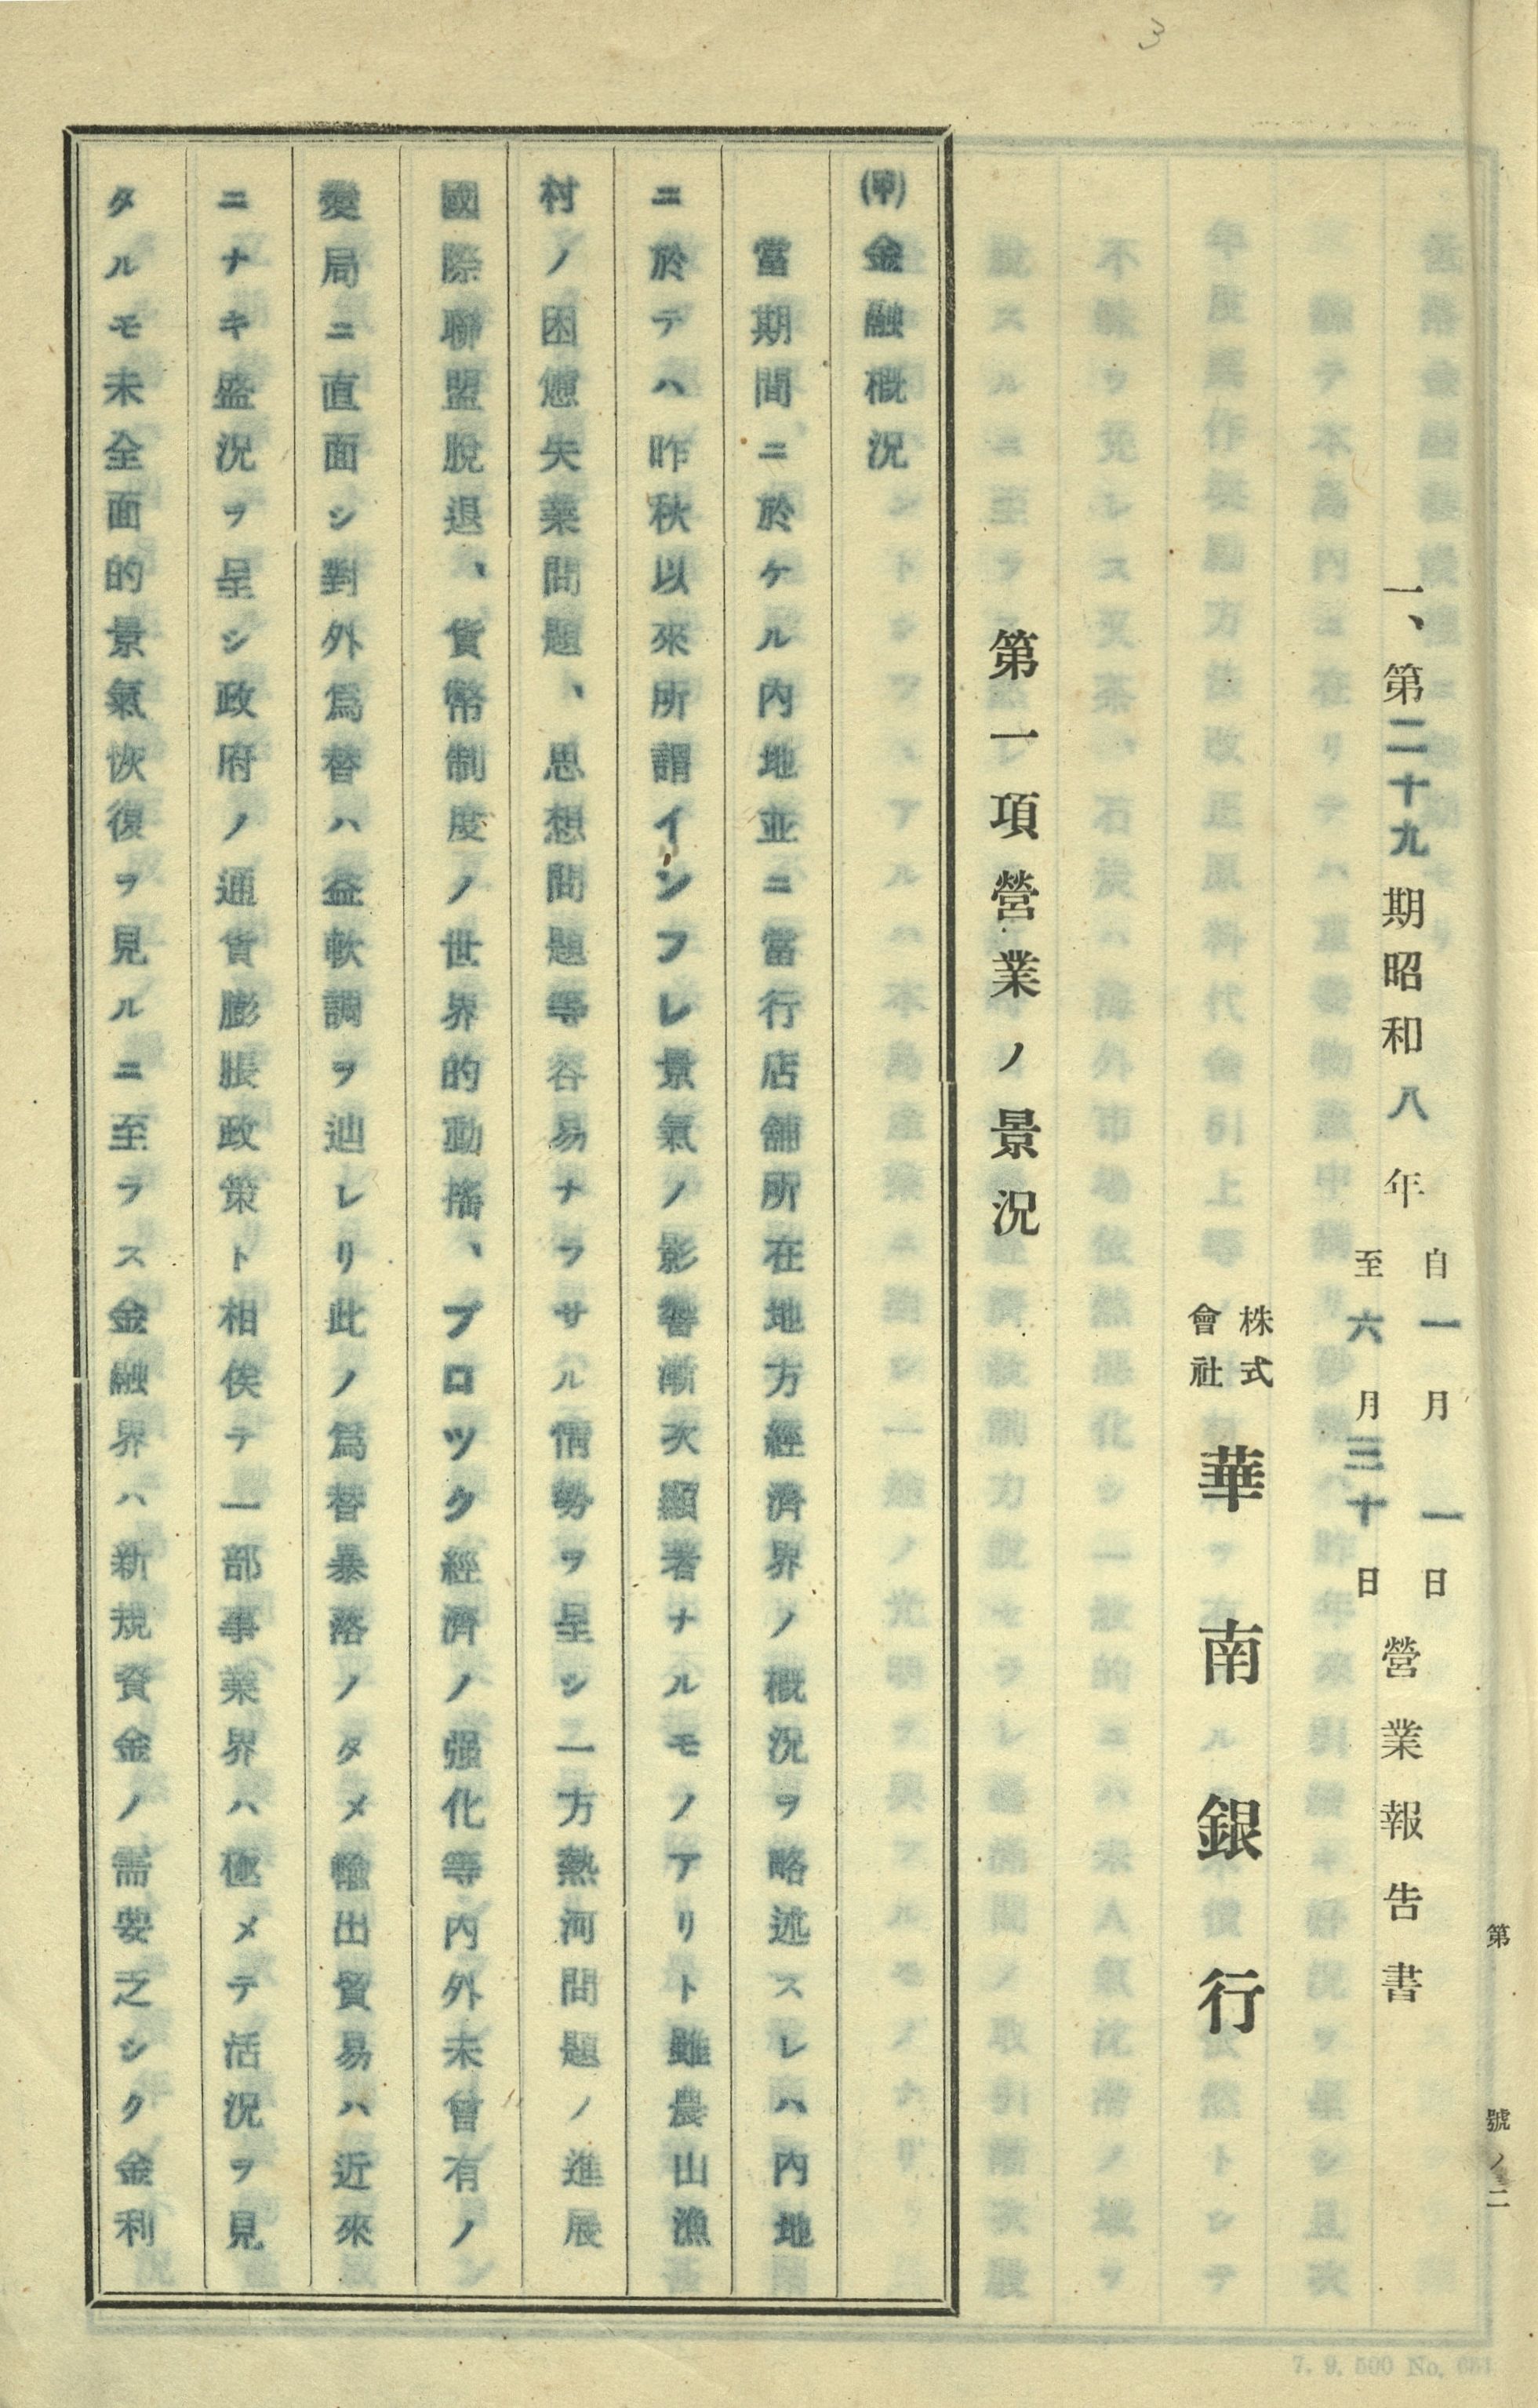 3
第　號ノ二
一、第二十九期昭和八年 自一月一日 至六月三十日 營業報告書
株式會社 華南銀行
第一項營業ノ景況
(甲)金融概況
當期間ニ於ケル內地並ニ當行店舖所在地方經濟界ノ概況ヲ略述スレハ內地
ニ於テハ昨秋以來所謂インフレ景氣ノ影響漸次顯著ナルモノアリト雖農山漁
村ノ困憊失業問題、思想問題等容易ナラサル情勢ヲ呈シ一方熱河問題ノ進展
國際聯盟脫退、貨幣制度ノ世界的動搖、ブロツク經濟ノ强化等內外未曾有ノ
變局ニ直面シ對外爲替ハ益軟調ヲ辿レリ此ノ爲替暴落ノタメ輸出貿易ハ近來
ニナキ盛況ヲ呈シ政府ノ通貨膨脹政策ト相俟テ一部事業界ハ極メテ活況ヲ見
タルモ未全面的景氣恢復ヲ見ルニ至ラス金融界ハ新規資金ノ需要乏シク金利
7. 9. 500 No. 651